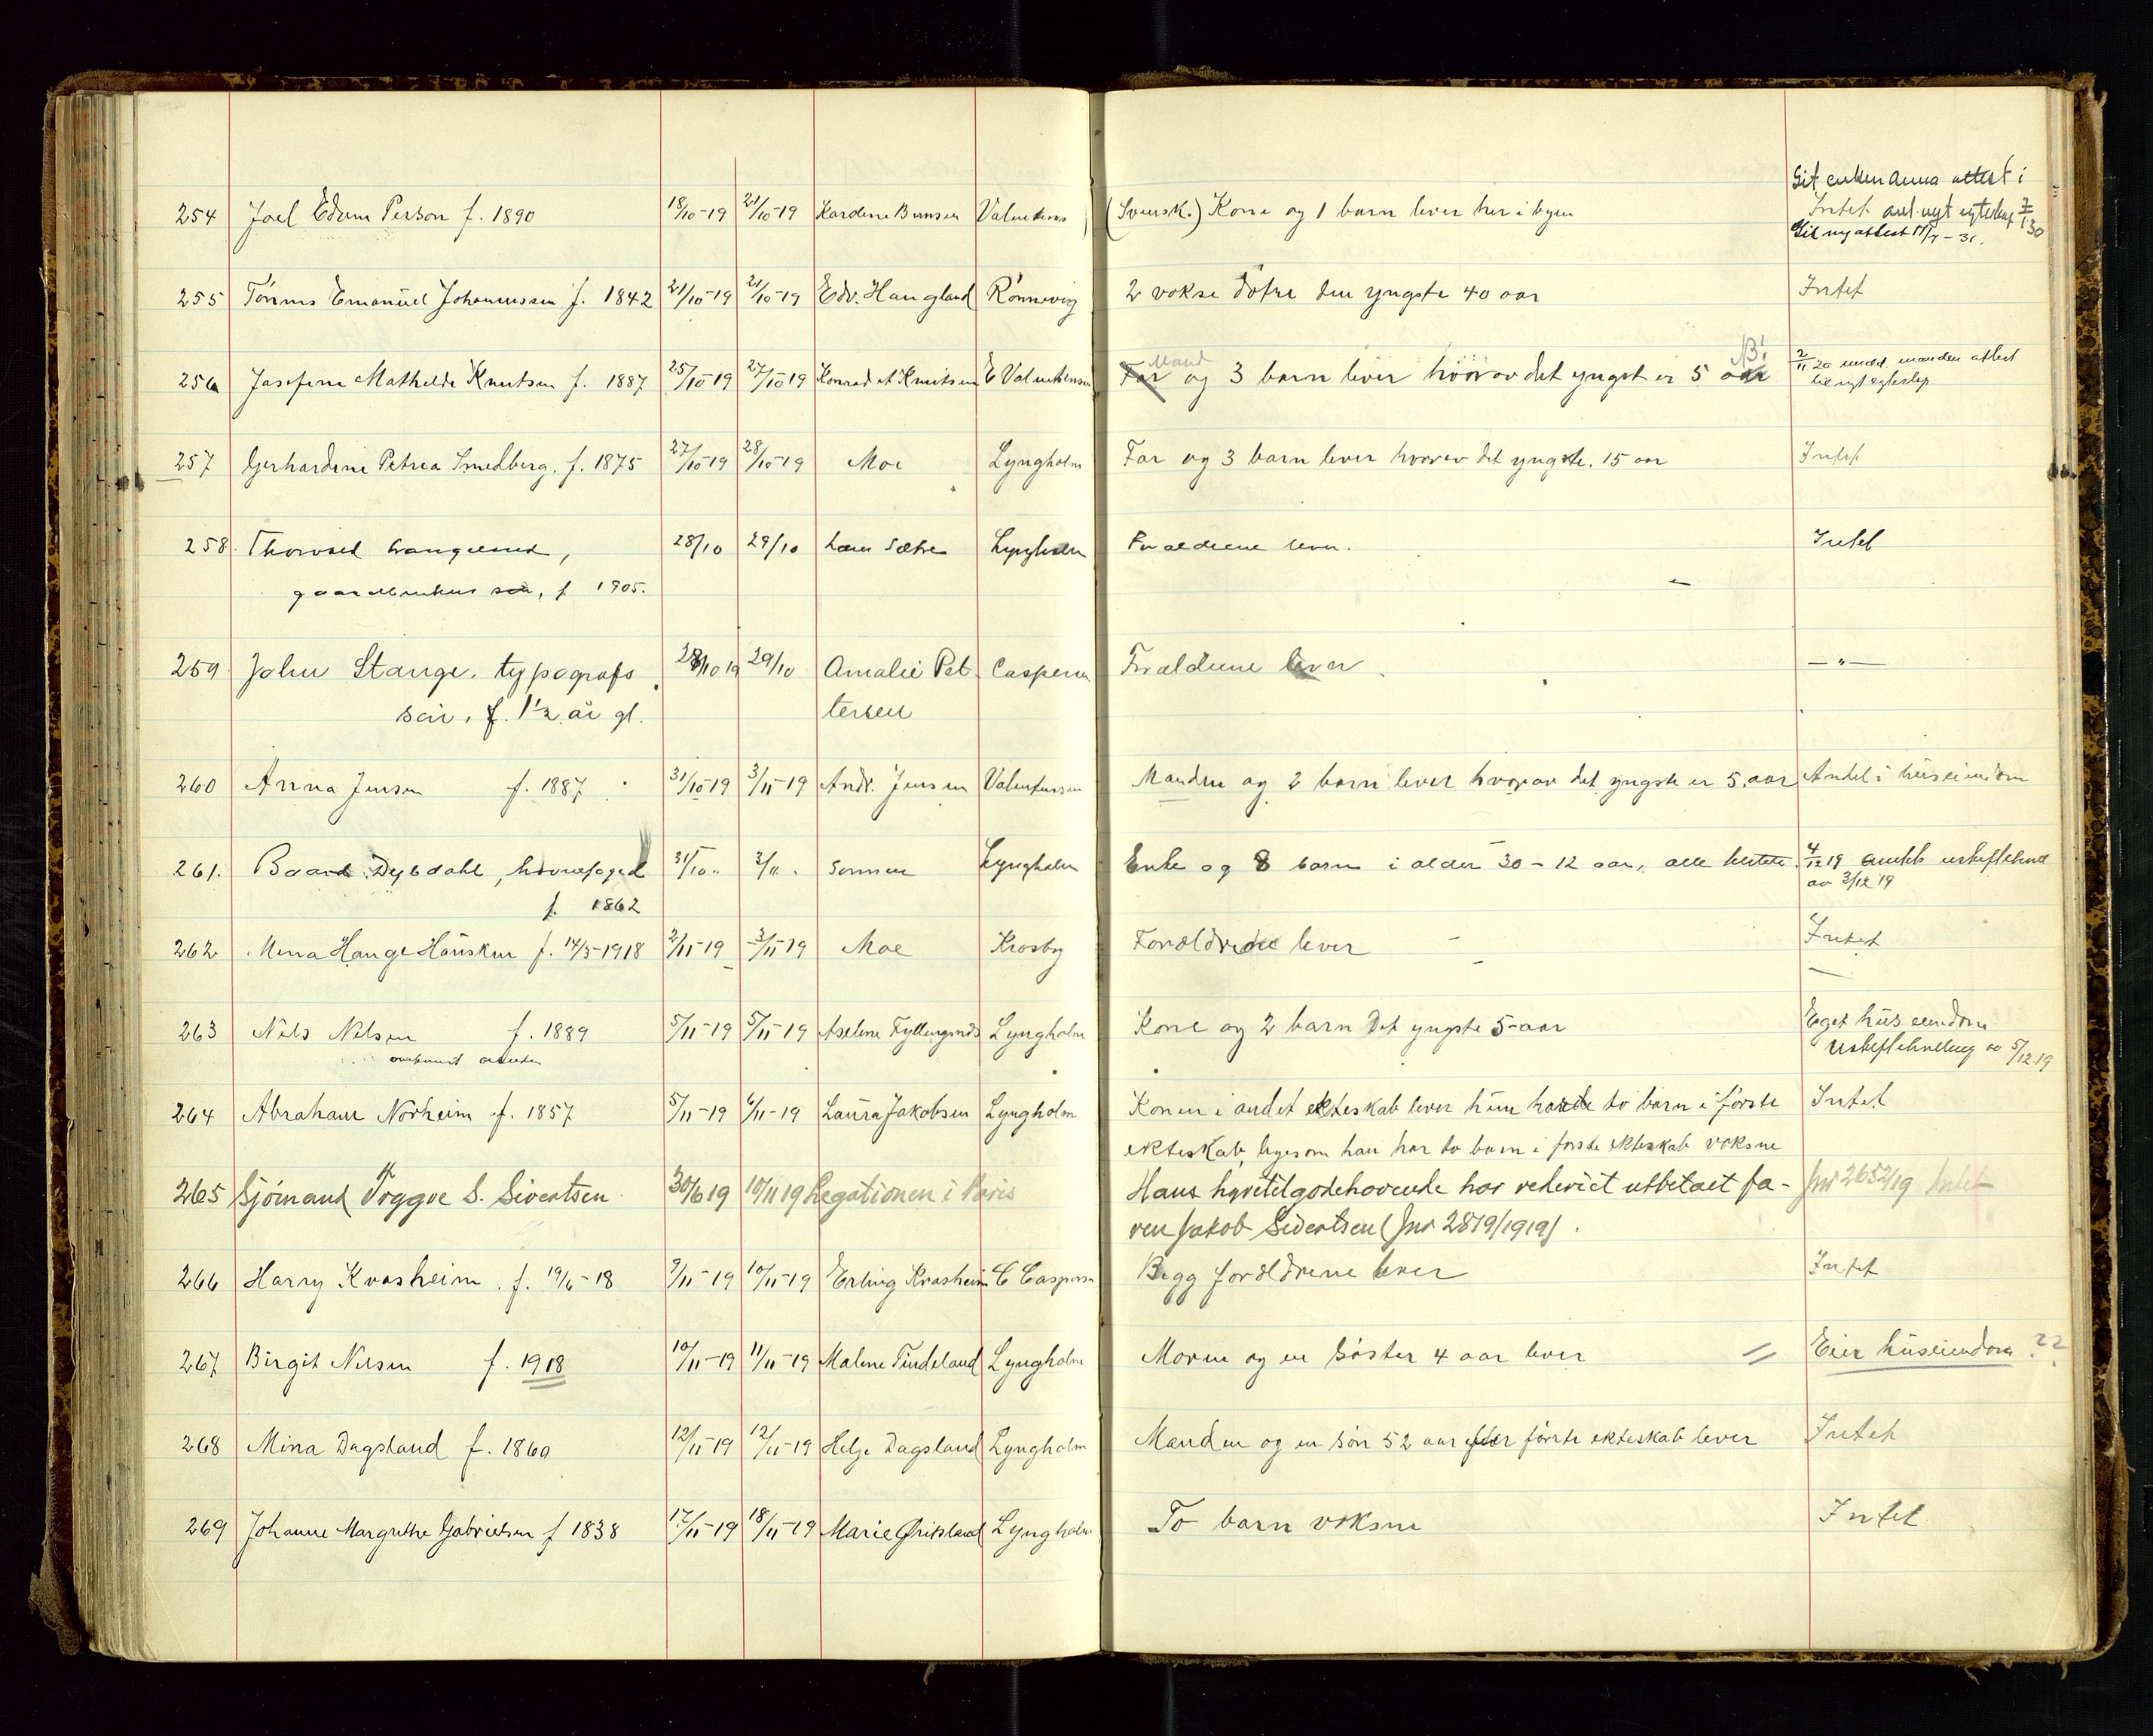 Git enken Anna attest i
254 Joel Edvin Person f. 1890 18/10-19 21/10-19 Kardine Bunsen Valentins (Svensk.) Kone og 1 barn lever her i byen Intet anl. nyt egteskap
Git ny attest
255 Tønnes Emanuel Johannessen f. 1842 21/10-19 21/10-19 Edv. Haugland Rønnevig 2 vokse døtre den yngste 40 aar Intet
256 Josefine Mathilde Knutsen f. 1887 25/10-19 27/10-19 Konrad Knutsen E Valentinsen Mand og 3 barn lever hvorav det yngst er 5 aar 2/11 20 manden attest
til nyt egteskap.
257 Gerhardine Petrea Smedberg. f. 1875 27/10-19 28/10-19 Moe Lyngholm Far og 3 barn lever hvorav det yngste. 15 aar Intet
258 Thorvald 28/10 29/10 Lars Sætre Lyngholm Foraldrene lever. Intet
gaardbrukers søn, f 1905.
259 John Stange, typografs 28/10 19 29/10 Amalie Pet- Caspersen Foraldrene lever. —"—
søn, f. 1½ år gl. tersen
260 Anna Jensen f. 1887 31/10-19 3/11-19 Andr. Jensen Valentinsen Manden og 2 barn lever hvorav det yngste er 5 aar Andel i huseiendom
261. Baard Dybdahl, havnefoged 31/10 " 3/11 " Sønnen Lyngholm Enke og 8 barn i alder 30 - 12 aar, alle 4/12 19 uskiftebevill
f. 1862 av 3/12 19
262 Mina Hauge Hausken f. 14/3-1918 2/11-19 3/11-19 Moe Krosby Forældrene lever Intet
263 Nils Nilsen f. 1889 5/11-19 5/11-19 Aselene Fyllingsnes Lyngholm Kone og 2 barn Det yngste 5 aar Eget hus eiendom
Uskiftebevilling av 5/12.19
264 Abraham Norheim f. 1857 5/11-19 6/11-19 Laura Jakobsen Lyngholm Konen i andet ekteskab lever hun havde to barn i første Intet
ekteskab, ligesom han har to barn i første ekteskab voksne
265 Sjømand Tryggve S. Sivertsen 30/6 19 10/11 19 Legationen i Paris Hans hyretilgodehavende har rederiet utbetalt fa- Jnr 2652/19 Intet
ren Jakob Sivertsen (Jnr 2819/1919).
266 Harry Kvasheim. f. 19/6-18 9/11-19 10/11-19 Erling Kvasheim C Caspersen Begg forældrene lever Intet
267 Birgit Nilsen f. 1918 10/11-19 11/11-19 Malene Tindeland Lyngholm Moren og en søster 4 aar lever = Eier huseiendom ??
268 Mina Dagsland f. 1860 12/11-19 12/11-19 Helge Dagsland Lyngholm Manden og en søn 52 aar efter første ekteskab lever Intet
269 Johanne Margrethe Gabrielsen f 1838 17/11-19 18/11-19 Marie Gritsland Lyngholm To barn voksne Intet